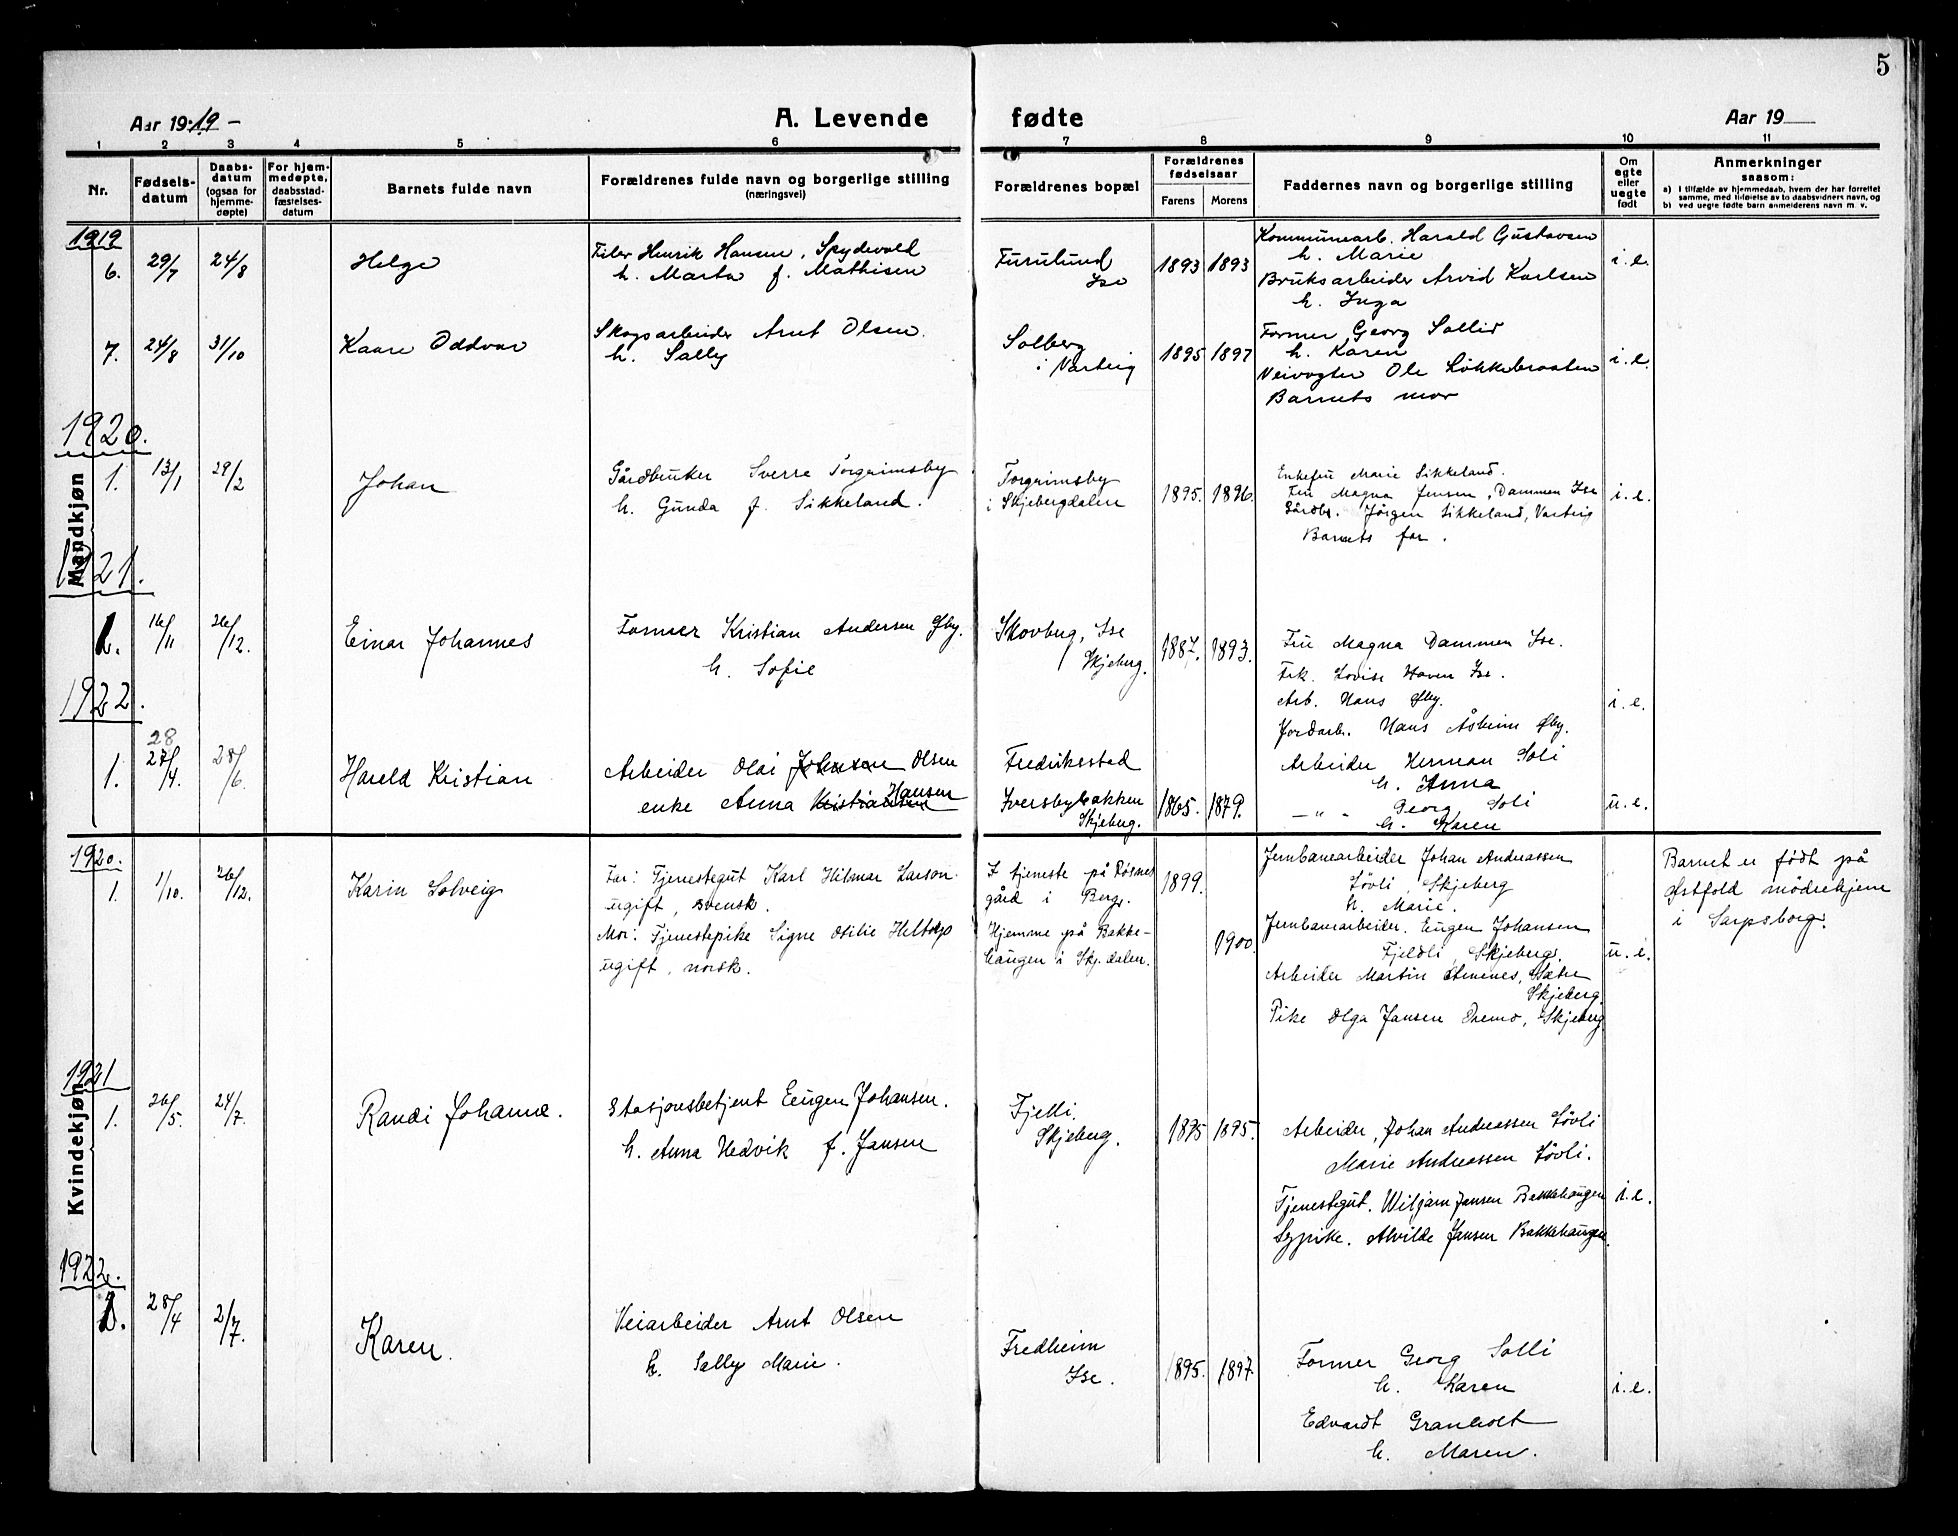 5
Aar 1919 -
A. Levende fødte
Aar 19
1 2 3 4 5 6 7 8 9 10 11
Nr.
Fødsels-
datum
Daabs-
datum
(ogsaa for
hjemme-
døpte)
For hjem-
medøpte,
daabsstad-
fæstelses-
datum
Barnets fulde navn
Forældrenes fulde navn og borgerlige stilling
(næringsvei)
Forældrenes bopæl
Forældrenes
fødselsaar
Farens Morens
Faddernes navn og borgerlige stilling
Om
egte
eller
uegte
født
Anmerkninger
saasom:
a) I tilfælde av hjemmedaab, hvem der har forrettet
samme, med tilføielse av to daabsvidners navn, og
b) ved uegte fødte barn anmelderens navn m. v.
Mandkjøn
1919
6. 29/7 24/8 Helge
Filer Henrik Hansen, Spydevold
h. Marta f. Mathisen
Furulund
Ise
1893 1893
Kommunearb. Harald Gustavsen
h. Marie
Bruksarbeider Arvid Karlsen
h. Inga
i. e.
7. 24/8 31/10 Kaare Oddvar
Skogsarbeider Arnt Olsen.
h. Sally
Solberg
i Varteig
1895 1897
Former Georg Sollid
h. Karen
Veivogter Ole Løkkebraaten
Barnets mor
i. e.
1920.
1. 13/1 29/2 Johan
Gårdbruker Sverre Torgrimsby
h. Gunda f. Sikkeland.
Torgrimsby
i Skjebergdalen
1895. 1896.
Enkefru Marie Sikkeland.
Fru Magna Jensen, Dammen Ise
Gårdbr. Jörgen Sikkeland, Varteig
Barnets far.
i. e.
1921.
1. 16/11 26/12. Einar Johannes
Former Kristian Andersen Øby.
h. Sofie
Skovberg, Ise
Skjeberg.
1887. 1893.
Fru Magna Dammen Ise.
Frk. Lovise Haven Ise.
Arb. Hans Øby.
Jordarb. Hans Åsheim Øby.
i. e.
1922.
28
1. 27/4. 28/6. Harald Kristian
Arbeider Olai Johnsen Olsen
enke Anna Kristiansen Hansen
Fredrikestad
Iversbybakken
Skjeberg.
1865. 1879.
Arbeider Herman Soli
h. Anna
— " - Georg Soli
h. Karen
u. e.
Kvindekjøn
1920.
1. 1/10. 26/12. Karin Solveig
Far: Tjenestegut Karl Hilmar Larson.
ugift, svensk.
Mor: Tjenestepike Signe Otilie
ugift, norsk.
I tjeneste på Røsnes
gård i Berg.
Hjemme på Bakke-
haugen i Skj.dalen.
1899.
1900
Jernbanearbeider Johan Andreassen
Lövli, Skjeberg
h. Marie.
Jernbanearbeider. Eugen Johansen
Fjeldli, Skjeberg.
Arbeider Martin Sætre
Skjeberg.
Pike Olga Jansen Skjeberg
u. e.
Barnet er født på
Østfold mødrehjem
i Sarpsborg.
1921
1. 26/5. 24/7. Randi Johanne.
Stasjonsbetjent Eugen Johansen.
h. Anna Hedvik f. Jansen
Fjelli.
Skjeberg.
1895 1895.
Arbeider, Johan Andreassen Lövli
Marie Andreassen Lövli.
Tjenestegut. Wiljam Jansen Bakkehaugen
Sypike. Alvilde Jansen Bakkehaugen.
i. e.
1922.
1. 28/4 2/7. Karen.
Veiarbeider Arnt Olsen
h. Sally Marie.
Fredheim
Ise.
1895. 1897.
Former Georg Solli
h. Karen
Edvardt Granholt
h. Maren.
i. e.